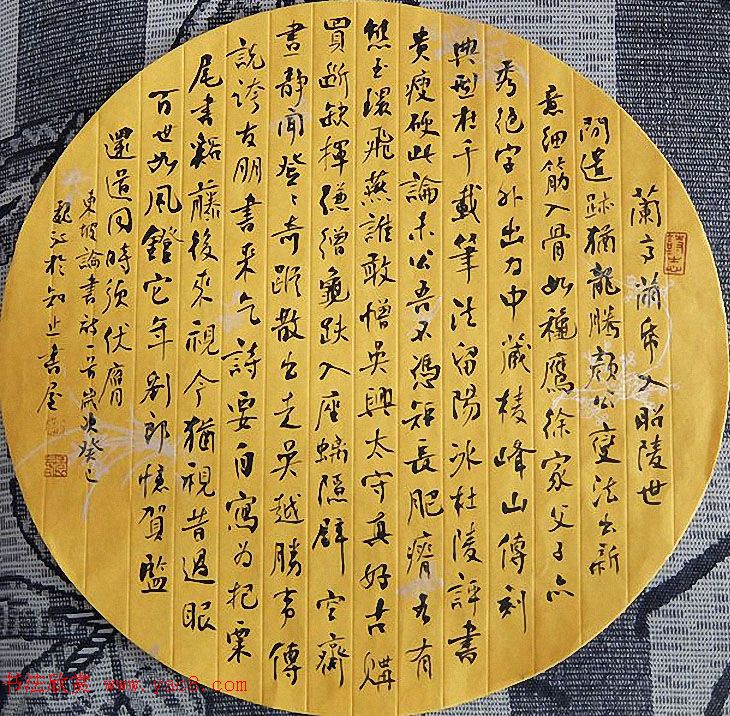 蘭亭繭帋入昭陵世
間遺跡猶龍騰顏公變法出新
意細筋入骨如種鷹徐家父子亦
秀絕字外出力中藏棱峰山傳刻
典型在千載筆法留陽冰杜陵評書
貴瘦硬此論未公吾不憑短長肥瘠各有
態玉環飛燕誰敢憎吳興太守真好古購
買斷缺揮縑繒龜趺入座螭隱壁空齋
晝靜聞登〻奇蹤散出走吳越勝事傳
說誇友朋書來乞詩要自寫為把栗
尾書谿藤後來視今猶視昔過眼
百世如風鐙它年劉郎憶賀監
還道同時須伏膺
東坡論書詩一首歲次癸巳
於知止書屋
书法欣赏 www.yac8.com